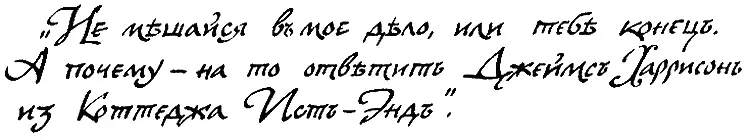 „Не мѣшайся въ мое дѣло, или тебѣ конецъ.
А почему – на то отвѣтить Джеймсъ Харрисонъ
из Коттеджа Истъ-Эндъ".